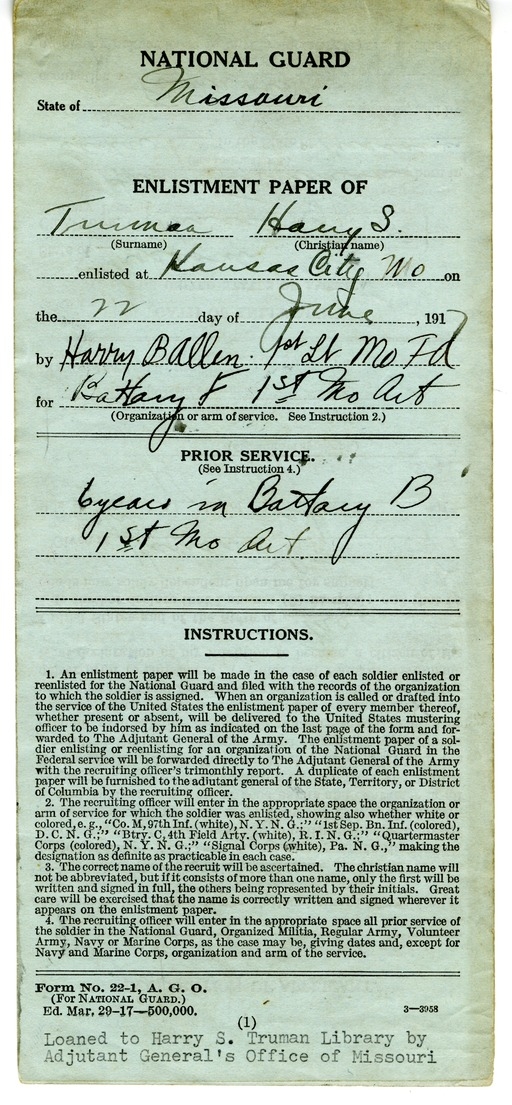 NATIONAL GUARD
State of Missouri
ENLISTMENT PAPER OF
Truman Harry S.
(Surname) (Christian name)
enlisted at Kansas City Mo on
the 22 day of June, 1917
by Harry B Allen. 1st Lt Mo Fd
for Battary F 1st Mo Art
(Organization or arm of service. See Instruction 2.)
PRIOR SERVICE.
(See Instruction 4.)
6 years in Battary B
1st Mo Art
INSTRUCTIONS.
1. An enlistment paper will be made in the case of each soldier enlisted or
reenlisted for the National Guard and filed with the records of the organization
to which the soldier is assigned. When an organization is called or drafted into
the service of the United States the enlistment paper of every member thereof,
whether present or absent, will be delivered to the United States mustering
officer to be indorsed by him as indicated on the last page of the form and for-
warded to The Adjutant General of the Army. The enlistment paper of a sol-
dier enlisting or reenlisting for an organization of the National Guard in the
Federal service will be forwarded directly to The Adjutant General of the Army
with the recruiting officer's trimonthly report. A duplicate of each enlistment
paper will be furnished to the adjutant general of the State, Territory, or District
of Columbia by the recruiting officer.
2. The recruiting officer will enter in the appropriate space the organization or
arm of service for which the soldier was enlisted, showing also whether white or
colored, e. g., "Co. M, 97th Inf. (white), N. Y. N. G.;" "1st Sep. Bn. Inf. (colored),
D. C. N. G.;" "Btry. C, 4th Field Arty. (white), R. I. N. G.;" "Quartermaster
Corps (colored), N. Y. N. G.;" "Signal Corps (white), Pa. N. G.," making the
designation as definite as practicable in each case.
3. The correct name of the recruit will be ascertained. The christian name will
not be abbreviated, but if it consists of more than one name, only the first will be
written and signed in full, the others being represented by their initials. Great
care will be exercised that the name is correctly written and signed wherever it
appears on the enlistment paper.
4. The recruiting officer will enter in the appropriate space all prior service of
the soldier in the National Guard, Organized Militia, Regular Army, Volunteer
Army, Navy or Marine Corps, as the case may be, giving dates and, except for
Navy and Marine Corps, organization and arm of the service.
Form No. 22-1, A. G. O.
(FOR NATIONAL GUARD.)
Ed. Mar. 29-17—500,000. 3—3958
(1)
Loaned to Harry S. Truman Library by
Adjutant General's Office of Missouri